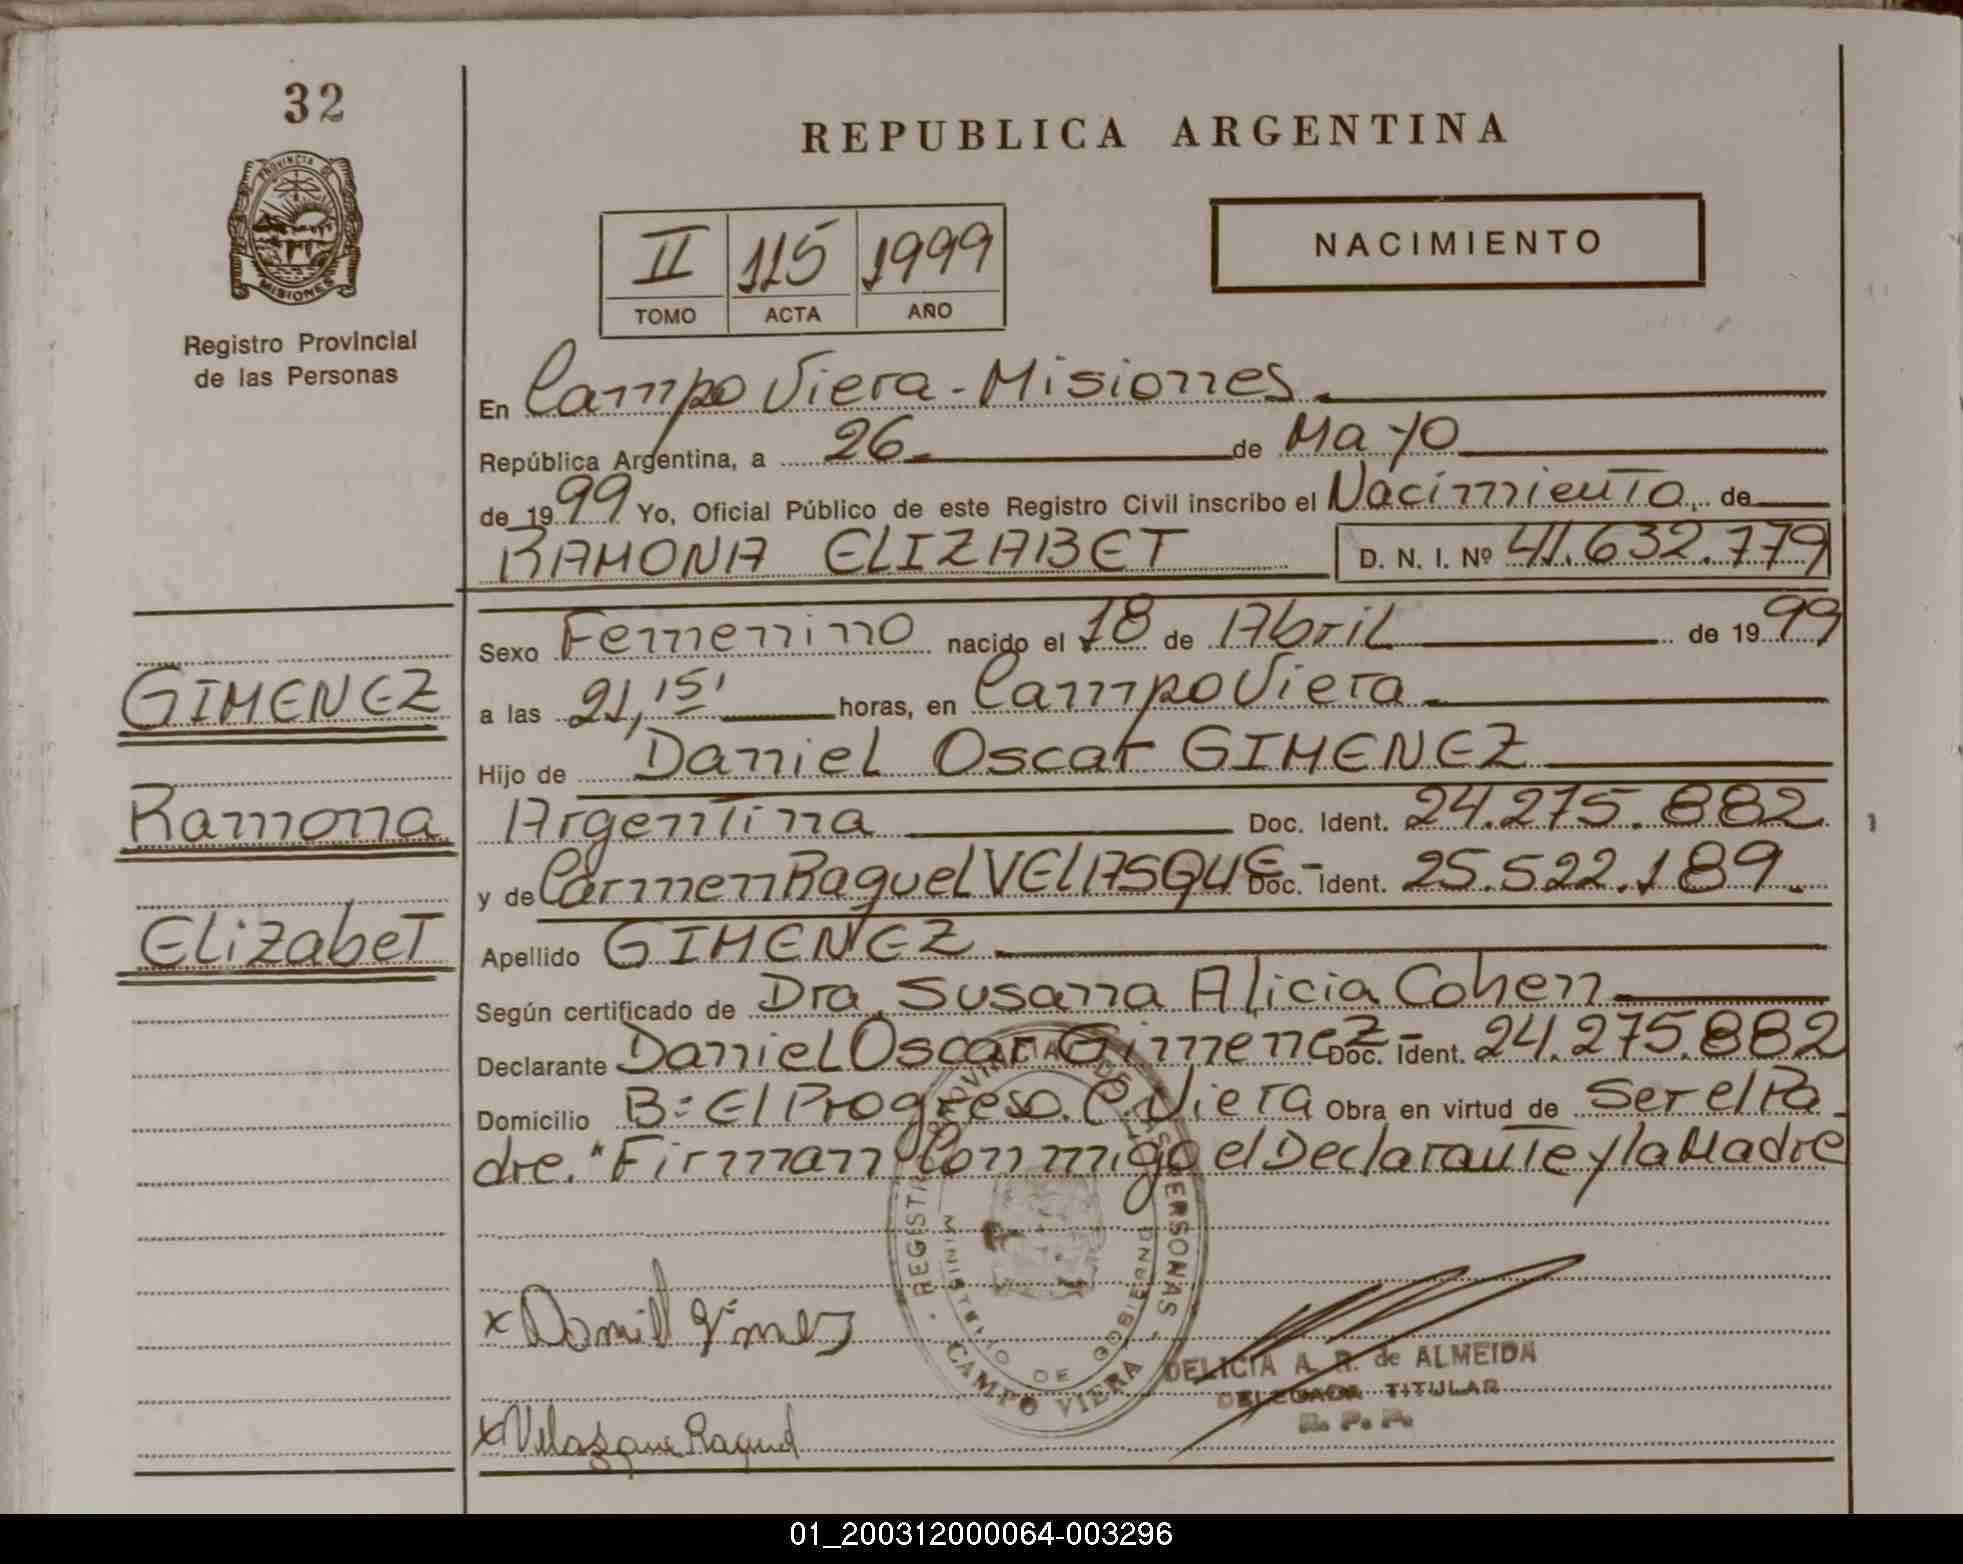 32
REPUBLICA ARGENTINA
PROVINCIA DE
MISIONES
Registro Provincial
de las Personas
II 115 1999
TOMO ACTA AÑO
NACIMIENTO
En Campo Viera - Misiones.
República Argentina, a 26 de Mayo
de 1999 Yo, Oficial Público de este Registro Civil inscribo el Nacimiento, de
RAMONA ELIZABET D. N. I. Nº 41.632.779
Sexo Femenino nacido el 18 de Abril de 1999
GIMENEZ
a las 21,15' horas, en Campo Viera
Hijo de Daniel Oscar GIMENEZ
Ramona
Argentina Doc. Ident. 24.275.882
y de Carmen Raquel VELASQUE- Doc. Ident. 25.522.189.
Elizabet
Apellido GIMENEZ
Según certificado de Dra. Susana Alicia Cohen
Declarante Daniel Oscar Gimenez- Doc. Ident. 24.275.882
Domicilio B: El Progreso. C. Viera Obra en virtud de Ser el Pa
dre. "Firman Conmigo el Declarante y la Madre
REGISTRO PROVINCIAL DE LAS PERSONAS
MINISTERIO DE GOBIERNO
CAMPO VIERA
x Daniel Gimez
DELICIA A. R. de ALMEIDA
DELEGADA TITULAR
R. P. P.
x Velasque Raquel
01_200312000064-003296